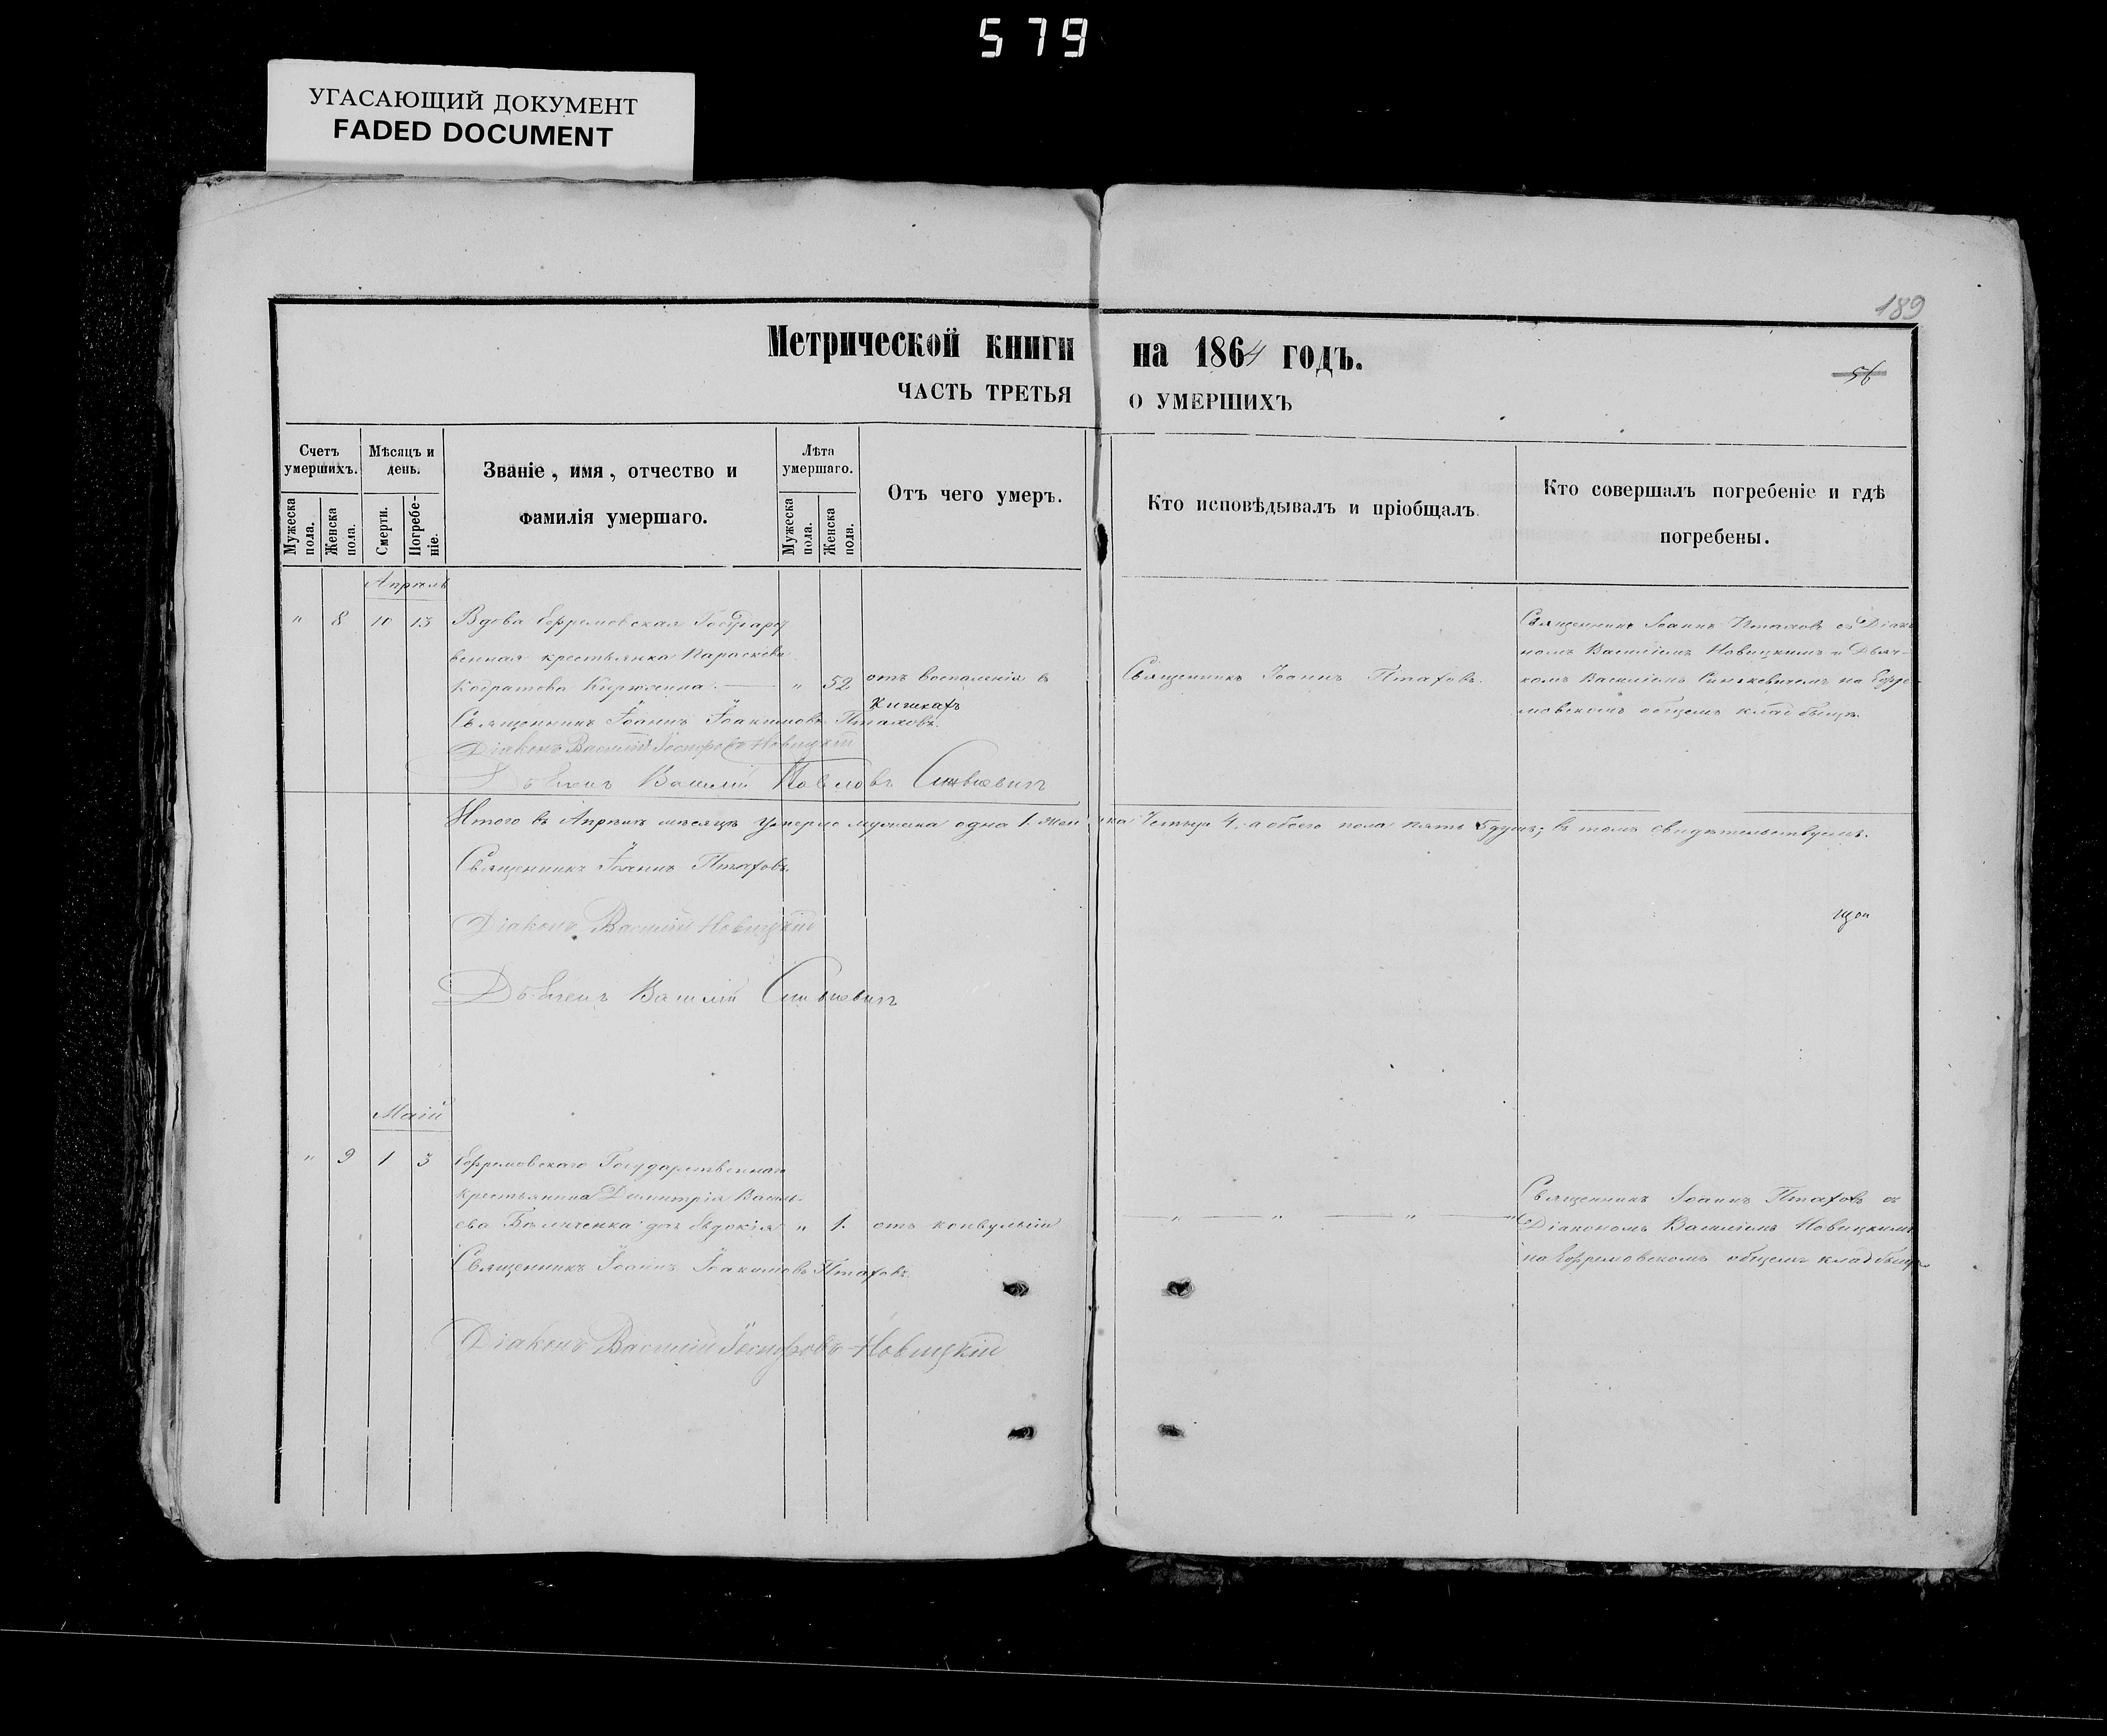 579
УГАСАЮЩИЙ ДОКУМЕНТ
FADED DOCUMENT
189
Метрической книги на 1864 годъ.
56
ЧАСТЬ ТРЕТЬЯ О УМЕРШИХЪ
Счетъ умершихъ.
Мужеска пола.
Женска пола.
Мѣсяцъ и день.
Смерти.
Погребе-ніе.
Званіе, имя, отчество и
фамилія умершаго.
Лѣта умершаго.
Мужеска пола.
Женска пола.
Отъ чего умеръ.
Кто исповѣдывалъ и пріобщалъ.
Кто совершалъ погребеніе и гдѣ
погребены.
Апрѣль
" 8 10 13 Вдова Ефремовская Государст
венная крестьянка Параскева
Кодратова " 52 отъ воспаленія в
кишкахъ
Священникъ Іоаннъ Птаховъ.
Священникъ Іоаннъ Птаховъ съ Діако
номъ Василіемъ Новицкимъ и Дьяч-
комъ Василіемъ Синькевичемъ на Ефре-
мовскомъ общемъ кладбыще.
Священникъ Іоаннъ Іоакимовъ Птаховъ.
Діаконъ Василій Іосифовъ Новицкій
Дьячокъ Василій Павловъ Синькевичъ
Итого въ Апрѣлѣ мѣсяцѣ умерло мужеска одна 1. женска Четыре 4, а обоего пола пять 5 душъ; въ томъ свидѣтельствуемъ.
Священникъ Іоаннъ Птаховъ.
Діаконъ Василій Новицкій
Дьячокъ Василій Синькевичъ
Маій
" 9 1 3 Ефремовскаго Государственнаго
крестьянина Димитрія Василь-
ева дочь Евдокія " 1. отъ конвульсій
" " " "
Священникъ Іоаннъ Птаховъ съ
Діакономъ Василіемъ Новицкимъ
на Ефремовскомъ общемъ кладбыще
Священникъ Іоаннъ Іоакимовъ Птаховъ.
Діаконъ Василій Іосифовъ Новицкій